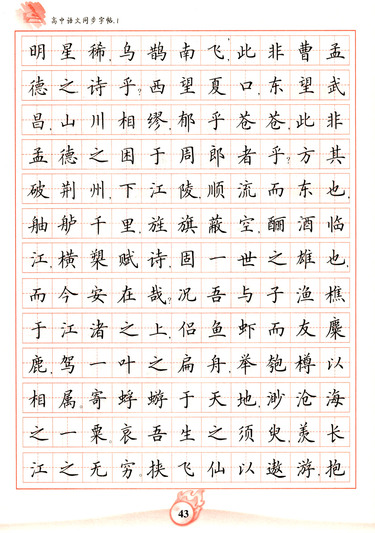 高中语文同步字帖.1
明星稀,乌鹊南飞,此非曹孟
德之诗乎?西望夏口,东望武
昌,山川相缪,郁乎苍苍,此非
孟德之困于周郎者乎?方其
破荆州,下江陵,顺流而东也,
舳舻千里,旌旗蔽空,酾酒临
江,横槊赋诗,固一世之雄也,
而今安在哉?况吾与子渔樵
于江渚之上,侣鱼虾而友麋
鹿,驾一叶之扁舟,举匏樽以
相属。寄蜉蝣于天地,渺沧海
之一粟。哀吾生之须臾,羡长
江之无穷。挟飞仙以遨游,抱
43